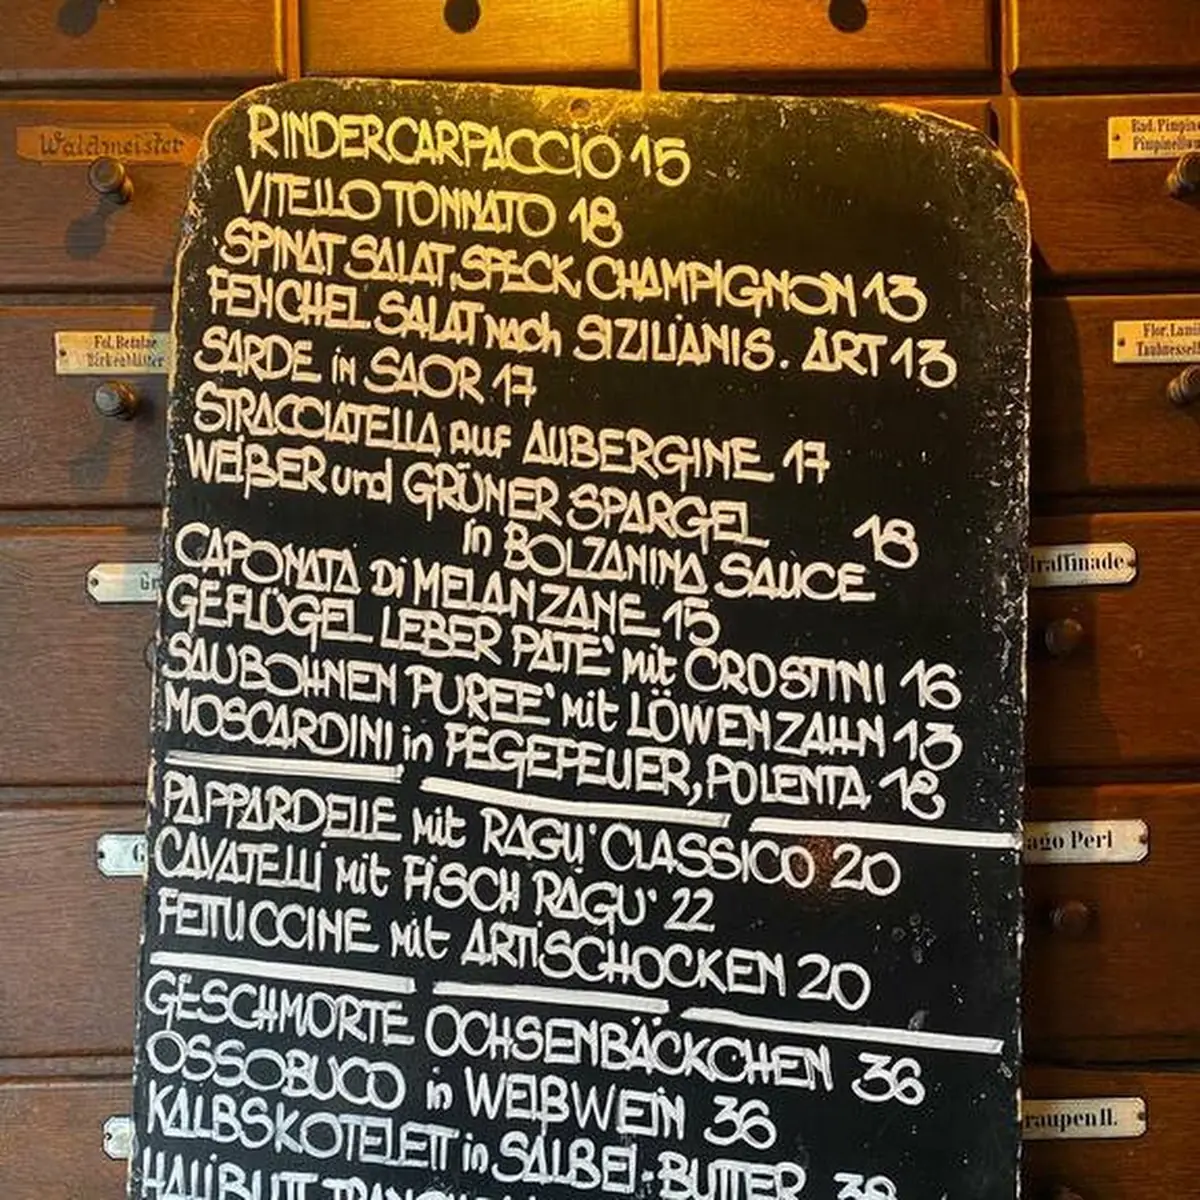 RINDERCARPACCIO 15
VITELLO TONNATO 18
SPINAT SALAT, SPECK, CHAMPIGNON 13
FENCHEL SALAT nach SIZILIANIS. ART 13
SARDE in SAOR 17
STRACCIATELLA AUF AUBERGINE 17
WEIßER und GRÜNER SPARGEL 18
in BOLZANINA SAUCE
CAPONATA Di MELANZANE 15
GEFLÜGEL LEBER PATE' mit CROSTINI 16
SAUBOHNEN PUREE' mit LÖWENZAHN 13
MOSCARDINI in PEGEPEUER, POLENTA 18
PAPPARDELLE mit RAGU' CLASSICO 20
CAVATELLI mit FISCH RAGU' 22
FETTUCCINE mit ARTISCHOCKEN 20
GESCHMORTE OCHSENBÄCKCHEN 36
OSSOBUCO in WEIßWEIN 36
KALBSKOTELETT in SALBEI-BUTTER 38
HALIBUTT
Waldmeister
Fol. Betulae
Birkenblätter
Bad. Pimpin
Pimpinellwu
Flor. Lam
Taubnessel
raffinade
ago Perl
raupen II.